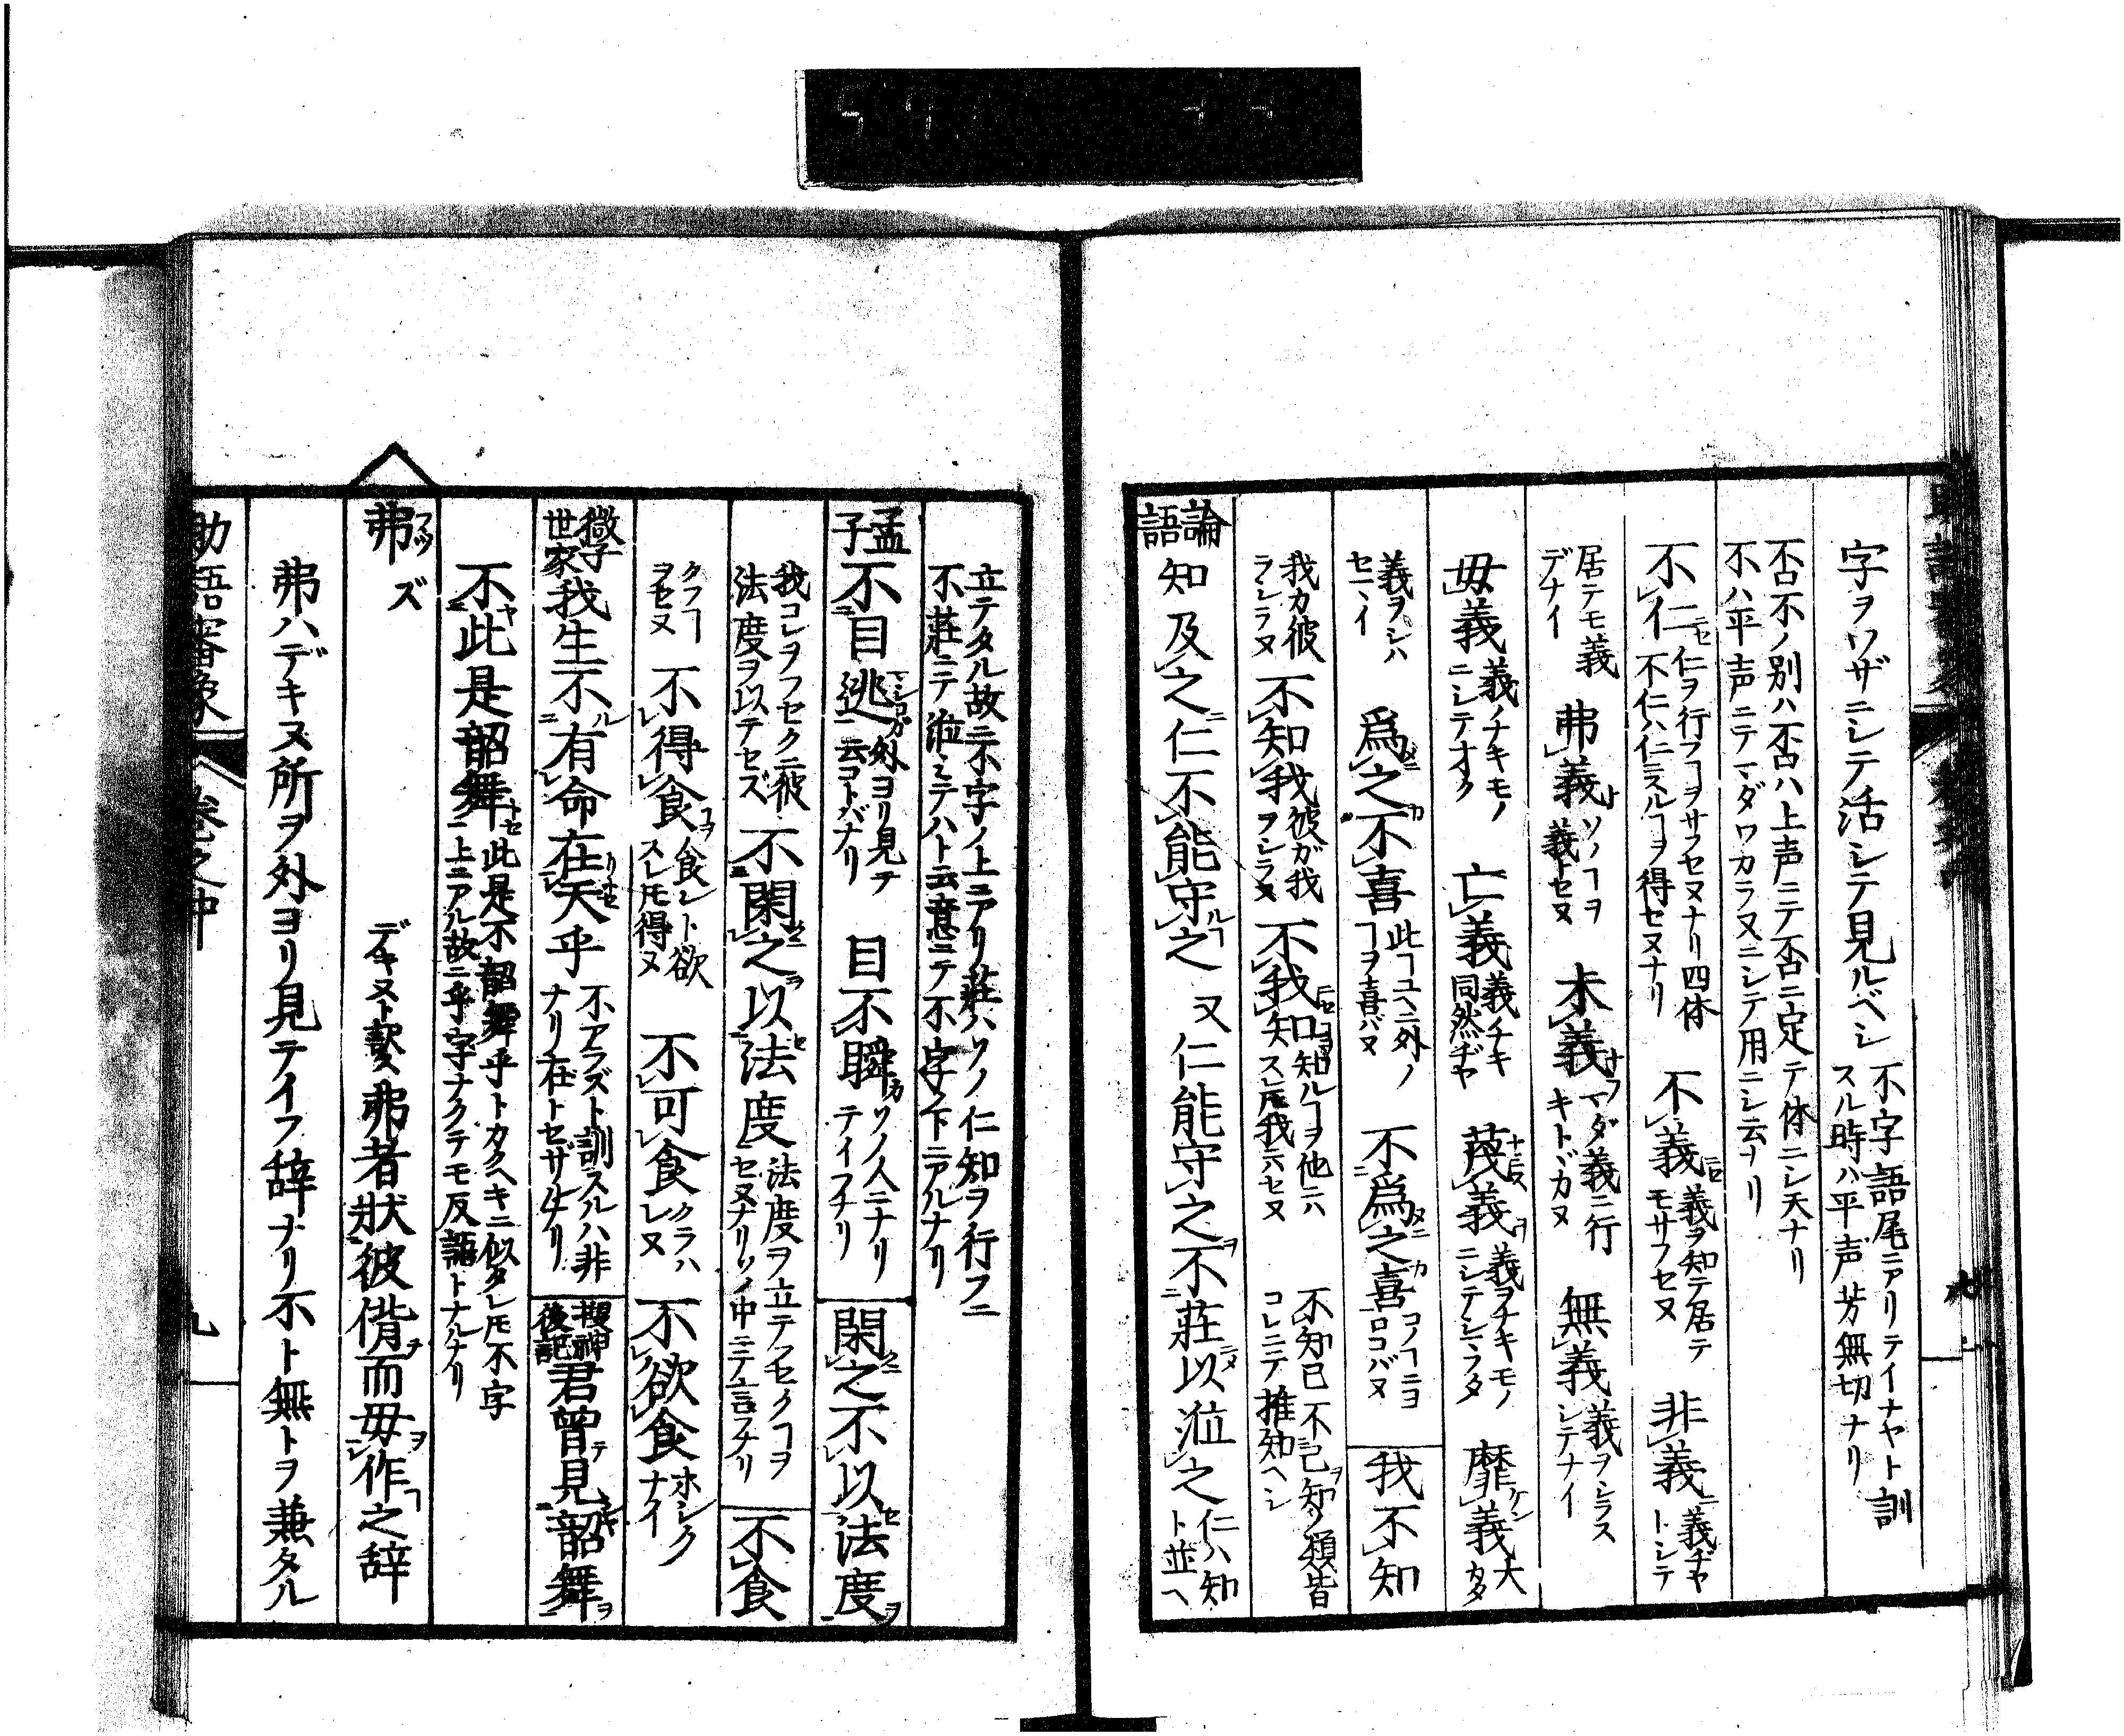 字ヲワザニシテ活シテ見ルベシ 不字語尾ニアリテイナヤト訓
スル時ハ平声芳無切ナリ
否不ノ別ハ不否ハ上声ニテ否ニ定テ体ニシ天ナリ
不ハ平声ニテマダワカラヌニシテ用ニシ云ナリ
不仁 仁ヲ行フヿヲサフセヌナリ四体
不仁ハ仁ニスルヿヲ得セヌナリ 不義 義ヲ知テ居テ
モサフセヌ 非義 義ヂヤ
トシテ
居テモ義
デナイ 弗義 ソノヿヲ
義トセヌ 未義 マダ義ニ行
キトヾカヌ 無義 義ヲシラス
シテナイ
毋義 義ノナキモノ
ニシテオク 亡義 義チキ
同然ヂヤ 蔑義 義ヲチキモノ
ニシテシラタ 靡義 大
カタ
義ヲシハ
セヽイ 爲之不喜 此ヿユヘニ外ノ
ヿヲ喜バヌ 不爲之喜 コノヿニヨ
ロコバヌ 我不知
我カ彼
ヲシラヌ 不知我 彼ガ我
ヲシラヌ 不我知 知ルヿヲ他ニハ
スレ𪜈我ニハセヌ 不知己不己知ノ類皆
コレニテ推知ヘシ
論語 知及之仁不能守之 又仁能守之不莊以涖之 仁ハ知
ト並ヘ
立テタル故ニ不字ノ上ニアリ莊ハソノ仁知ヲ行フニ
不莊ニテ涖ミテハト云意ニテ不字ノ下ニアルナリ
孟子 不目逃 外ヨリ見テ
云コトバナリ 目不瞬 ソノ人ニナリ
テイフナリ 閑之不以法度
我コレヲフセクニ彼
法度ヲ以テセズ 不閑之以法度 法度ヲ立テフセクヿヲ
セヌナリソノ中ニテ言フナリ 不食
クフヿ
ヲセヌ 不得食 食シト欲
スレ𪜈得ヌ 不可食 クラハ
レヌ 不欲食 ホシク
ナイ
微子世家 我生不有命在天乎 不アラズト訓スルハ非
ナリ在トセザルナリ 搜神後記 君曾見韶舞
不此是韶舞 此是不韶舞乎トカクヘキニ似タレ𪜈不字
上ニアル故ニ乎字ナクテモ反語トナルナリ
弗 フツ ズ デキヌト訳ス 弗者狀彼偝而毋作之辞
弗ハデキヌ所ヲ外ヨリ見テイフ辞ナリ不ト無トヲ兼タル
助語審象 卷之中 九